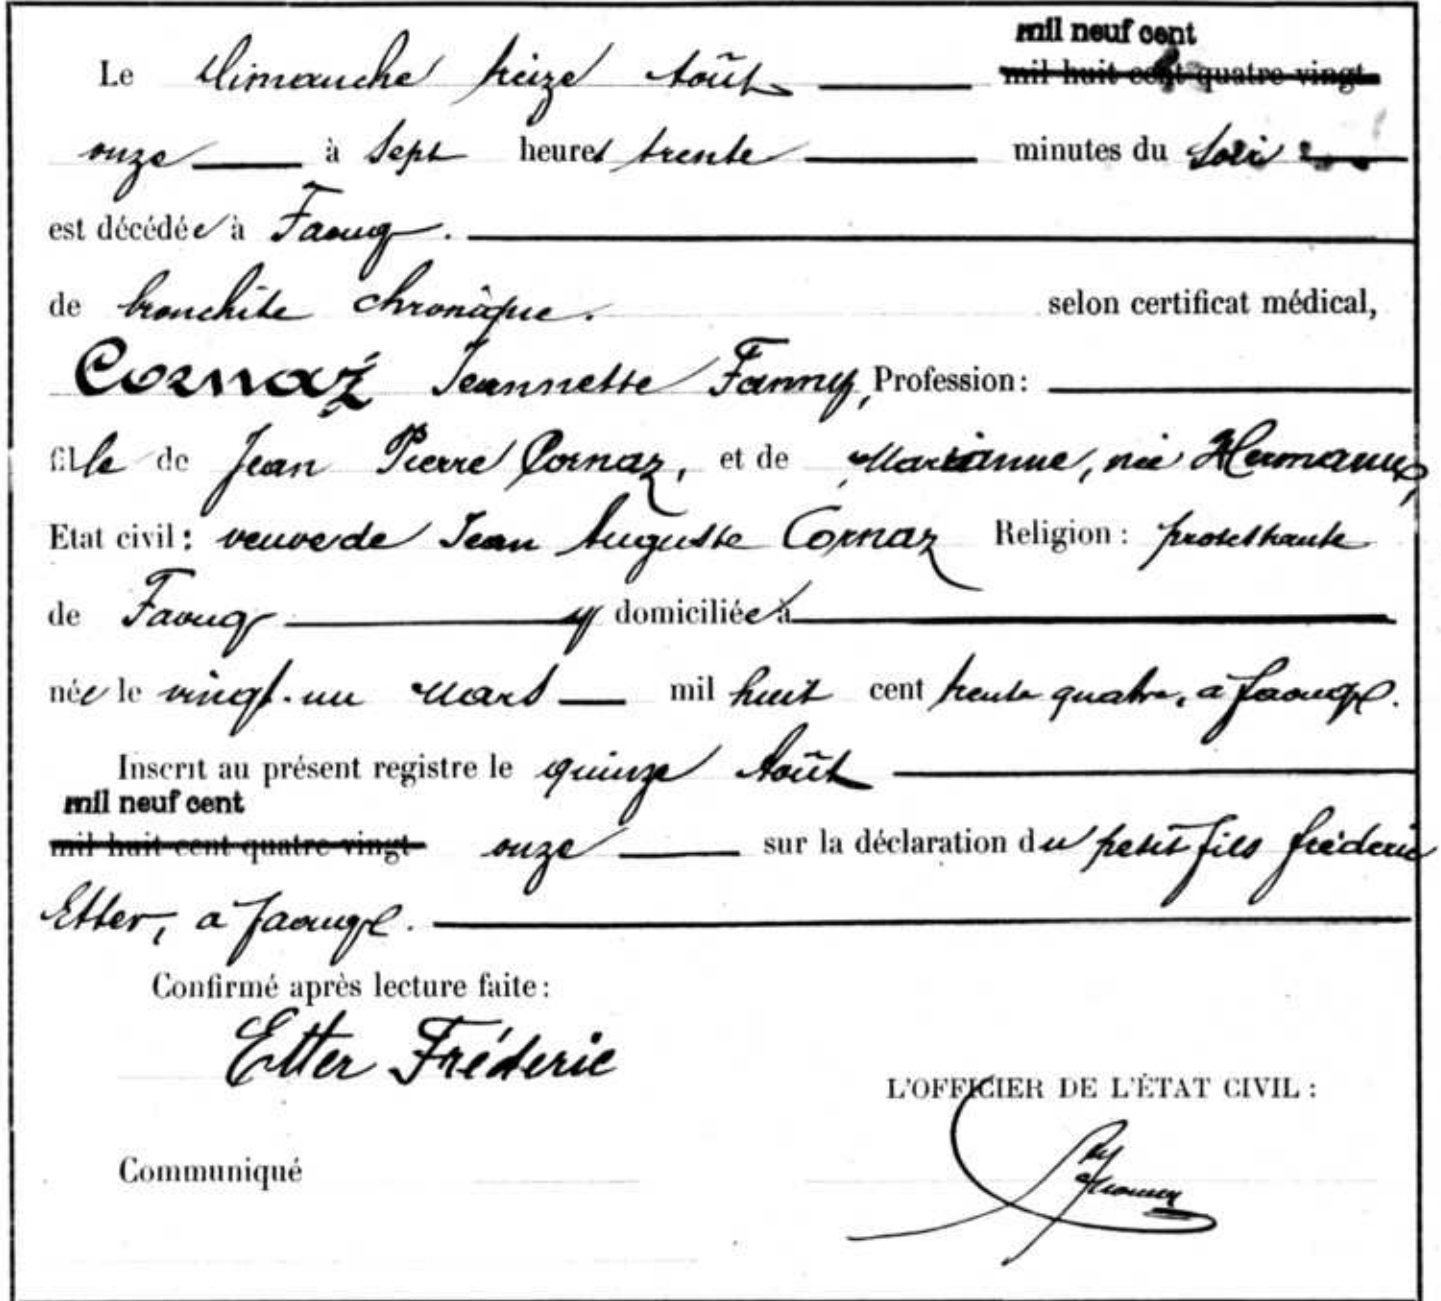 mil neuf cent
Le Dimanche treize Août mil huit cent quatre vingt
onze à sept heures trente minutes du soir
est décédée à Faoug.
de bronchite chronique. selon certificat médical,
Cornaz Jeannette Fanny, Profession:
fille de Jean Pierre Cornaz, et de Marianne, née Hermann,
Etat civil: veuve de Jean Auguste Cornaz Religion: protestante
de Faoug y domiciliée à
née le vingt-un Mars mil huit cent trente quatre, à Faoug.
Inscrit au présent registre le quinze Août
mil neuf cent
mil huit cent quatre vingt onze sur la déclaration du petit fils Fréderic
Etter, à Faoug.
Confirmé après lecture faite:
Etter Fréderic
L'OFFICIER DE L'ÉTAT CIVIL:
Communiqué